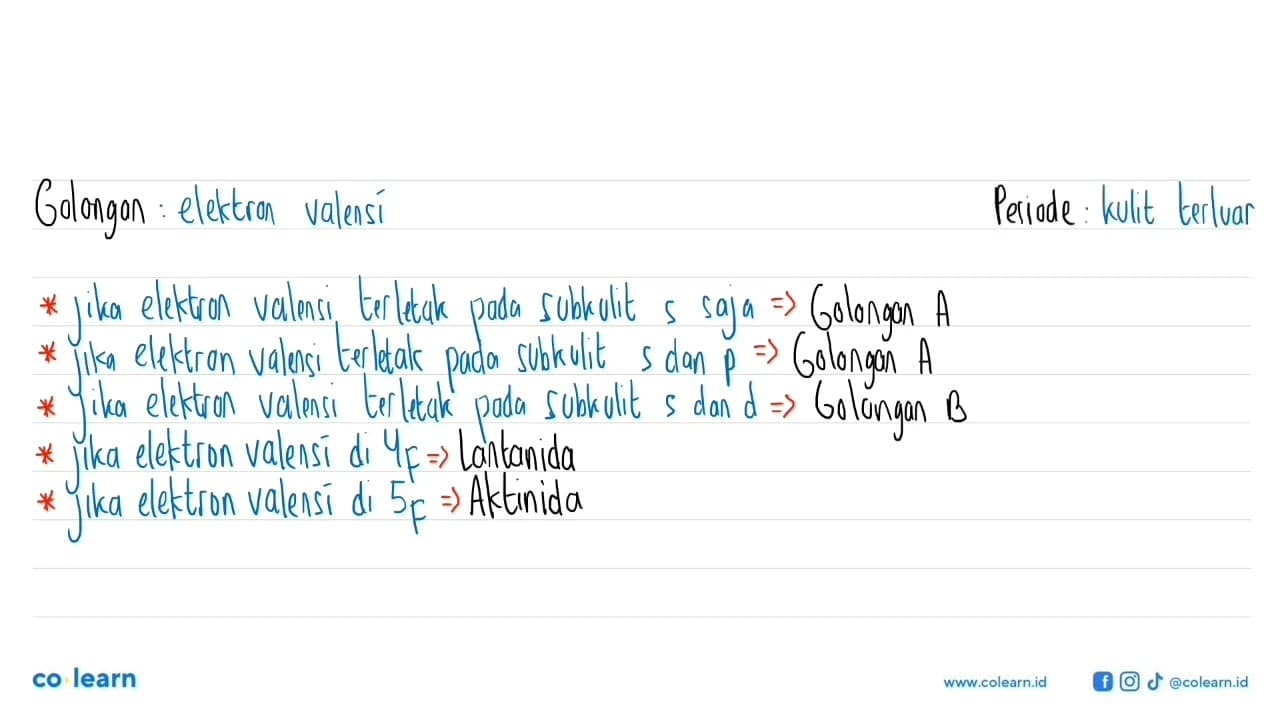 Golongan : elektron valensi Periode : kulit terluar
* jika elektron valensi terletak pada subkulit s saja => Golongan A
* jika elektron valensi terletak pada subkulit s dan p => Golongan A
* jika elektron valensi terletak pada subkulit s dan d => Golongan B
* jika elektron valensi di 4F => Lantanida
* jika elektron valensi di 5F => Aktinida
co learn www.colearn.id @colearn.id